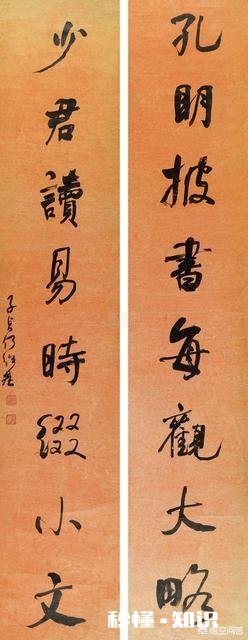 孔明披書每觀大略
少君讀易時綴小文
子貞何紹基
秒懂-知识